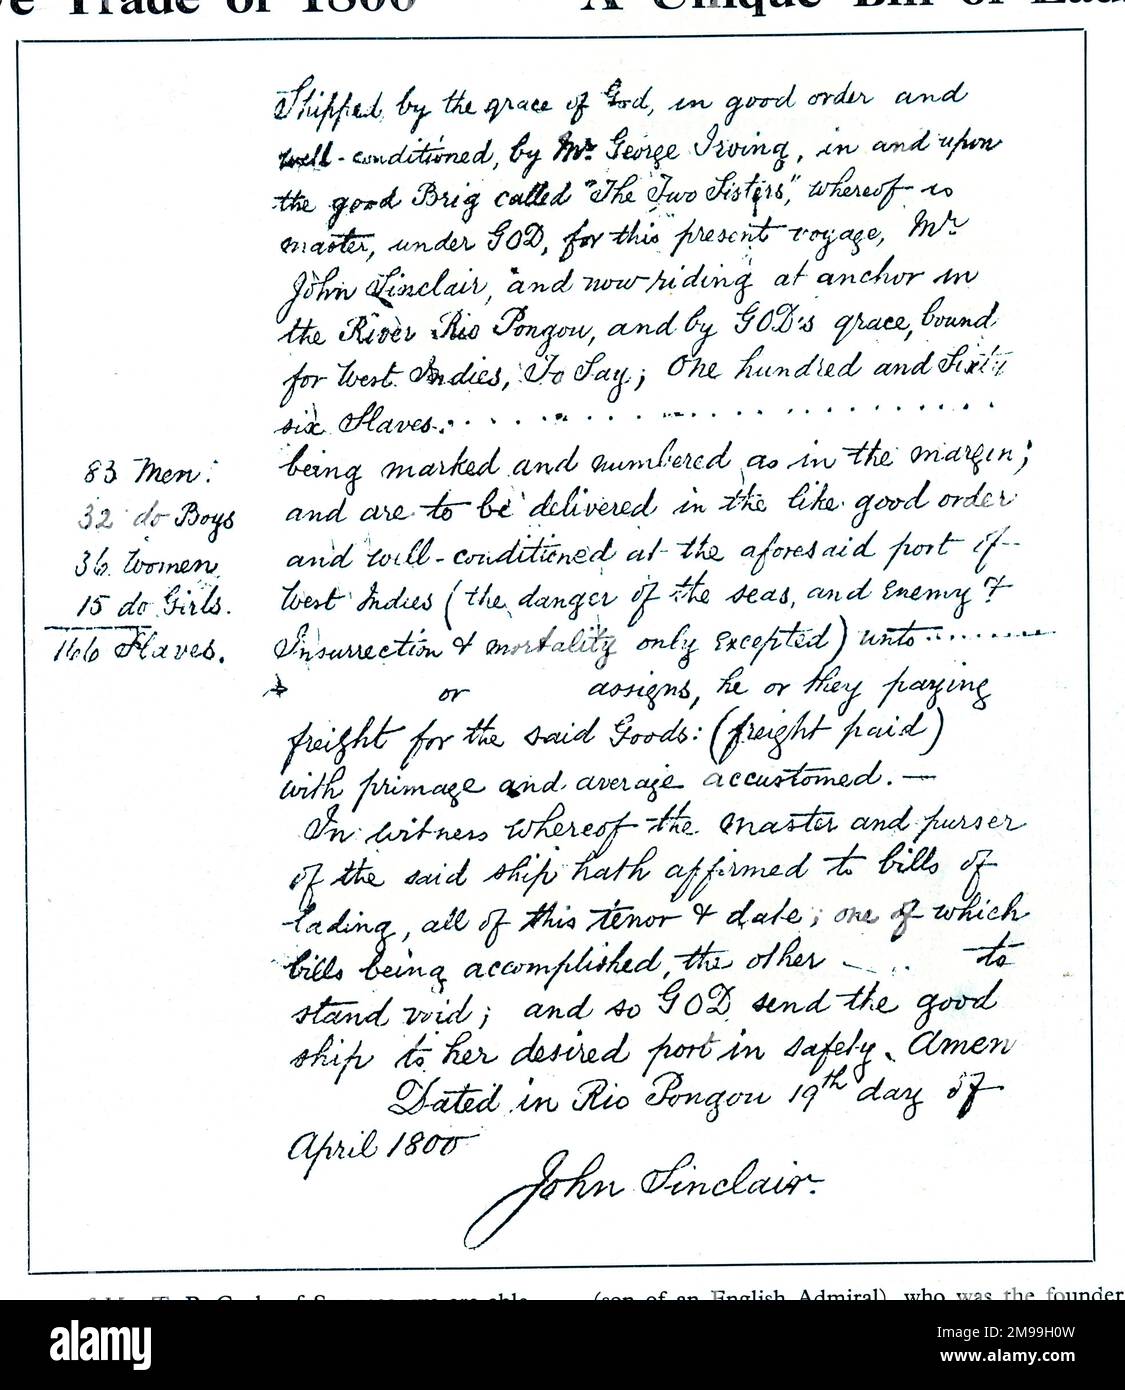 Trade of 1800 A Unique Bill of
Shipped by the grace of God, in good order and
well-conditioned, by Mr. George Irving, in and upon
the good Brig called "The Two Sisters," whereof is
master, under GOD, for this present voyage, Mr
John Sinclair, and now riding at anchor in
the River Rio Pongou, and by GOD's grace, bound
for West Indies, To Say; One hundred and Sixty
six Slaves.
83 Men:
32 do Boys
36 Women
15 do Girls.
166 Slaves.
being marked and numbered as in the margin;
and are to be delivered in the like good order
and well-conditioned at the aforesaid port of
West Indies (the danger of the seas, and Enemy &
Insurrection & mortality only Excepted) unto
or assigns, he or they paying
freight for the said Goods: (freight paid)
with primage and average accustomed. —
In witness whereof the Master and purser
of the said ship hath affirmed to bills of
lading, all of this tenor & date; one of which
bills being accomplished, the other to
stand void; and so GOD send the good
ship to her desired port in safety. Amen
Dated in Rio Pongou 19th day of
April 1800
John Sinclair.
(son of an English Admiral), who was the founder
alamy
Image ID: 2M99H0W
www.alamy.com